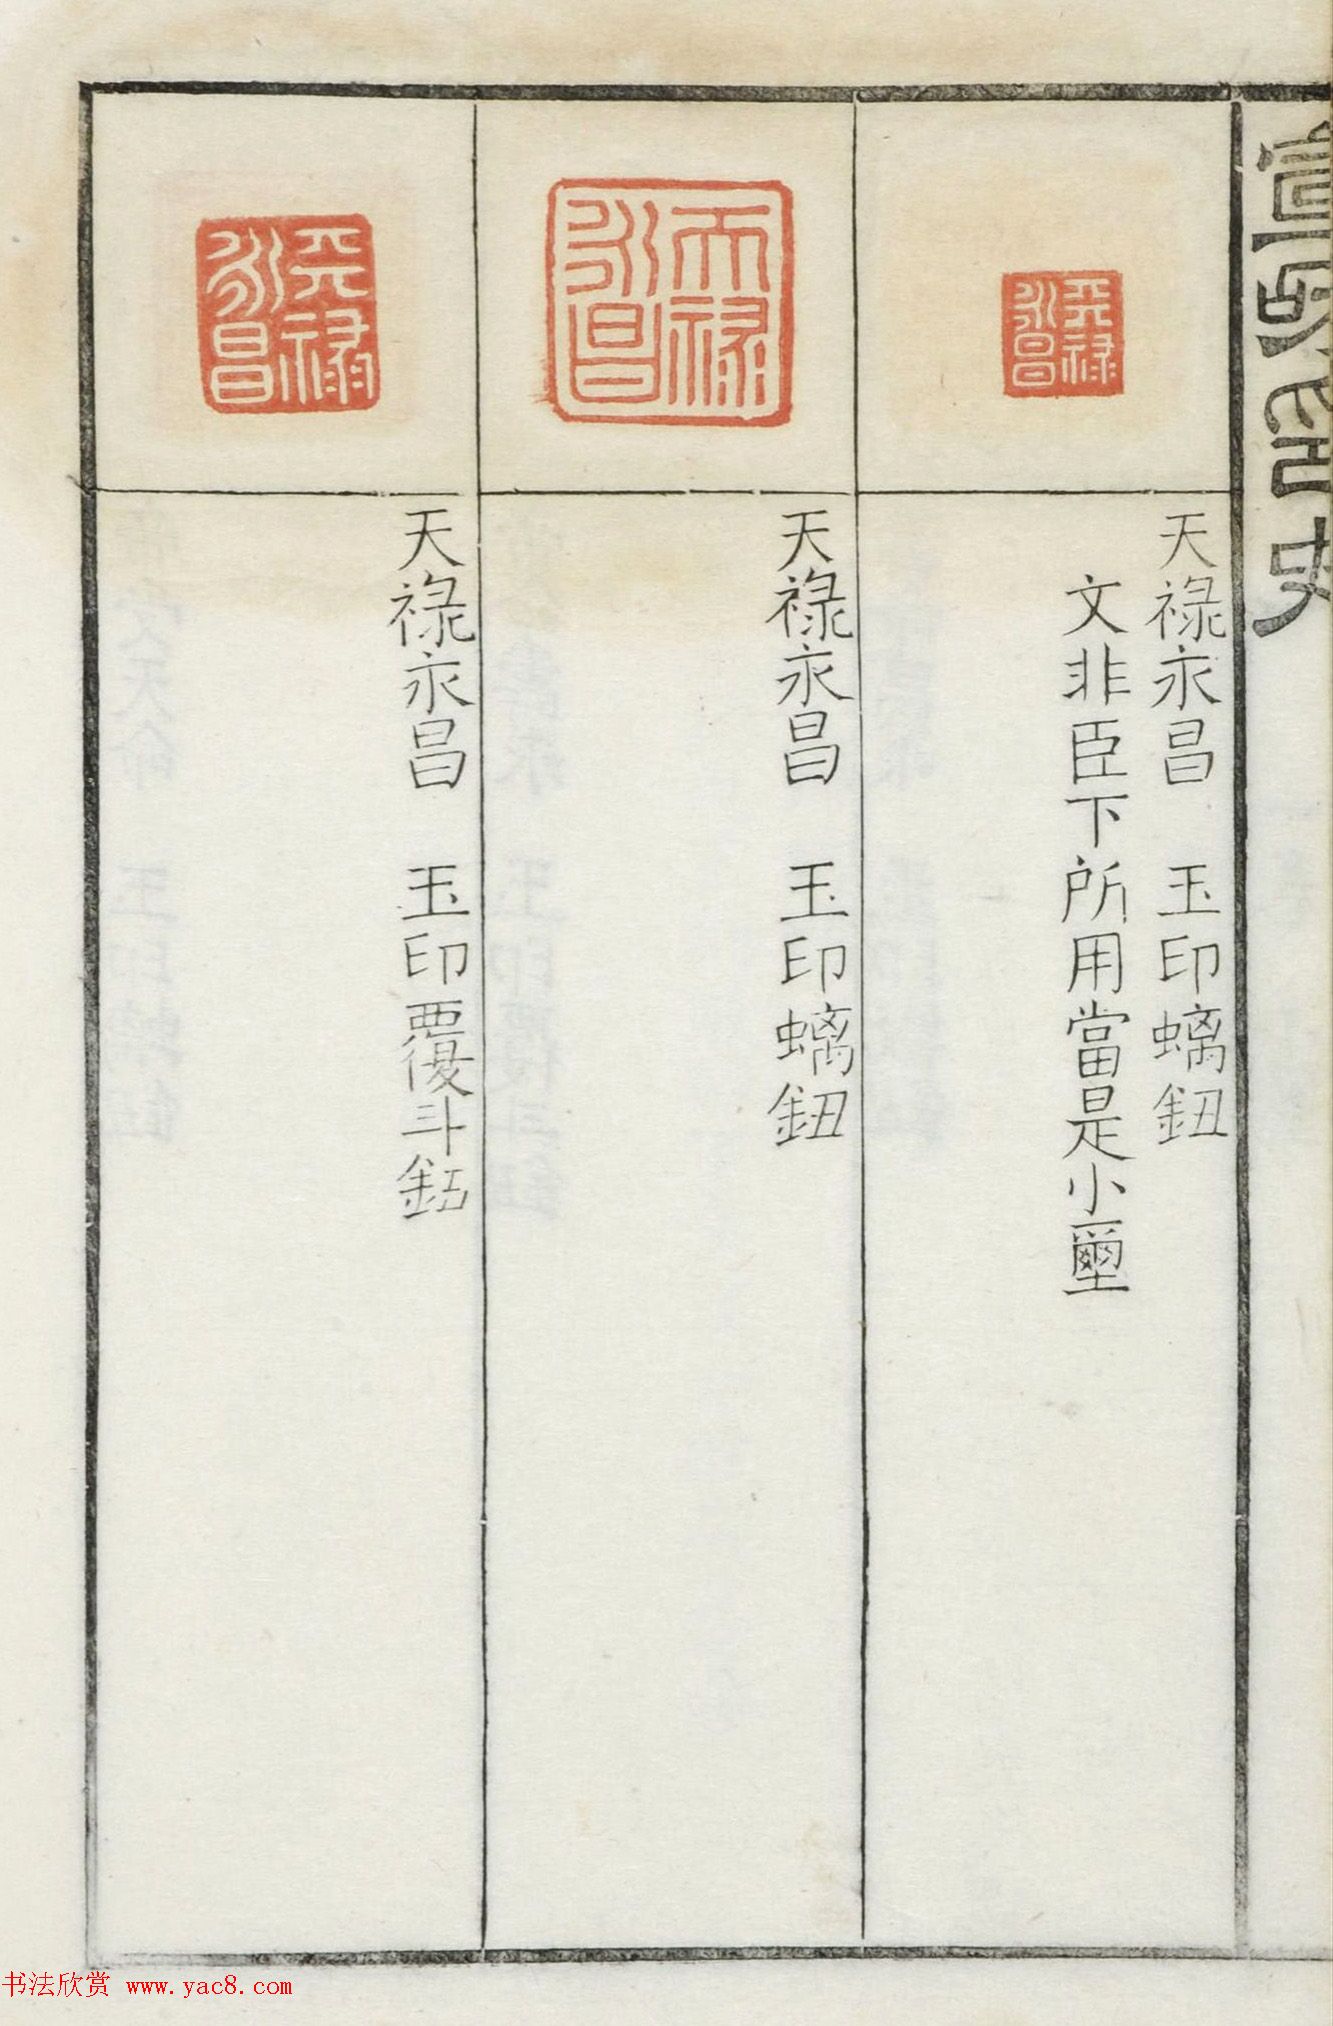 宣和集古印史
天祿永昌
天祿永昌 玉印螭鈕
文非臣下所用當是小璽
天祿永昌
天祿永昌 玉印螭鈕
天祿永昌
天祿永昌 玉印覆斗鈕
书法欣赏 www.yac8.com